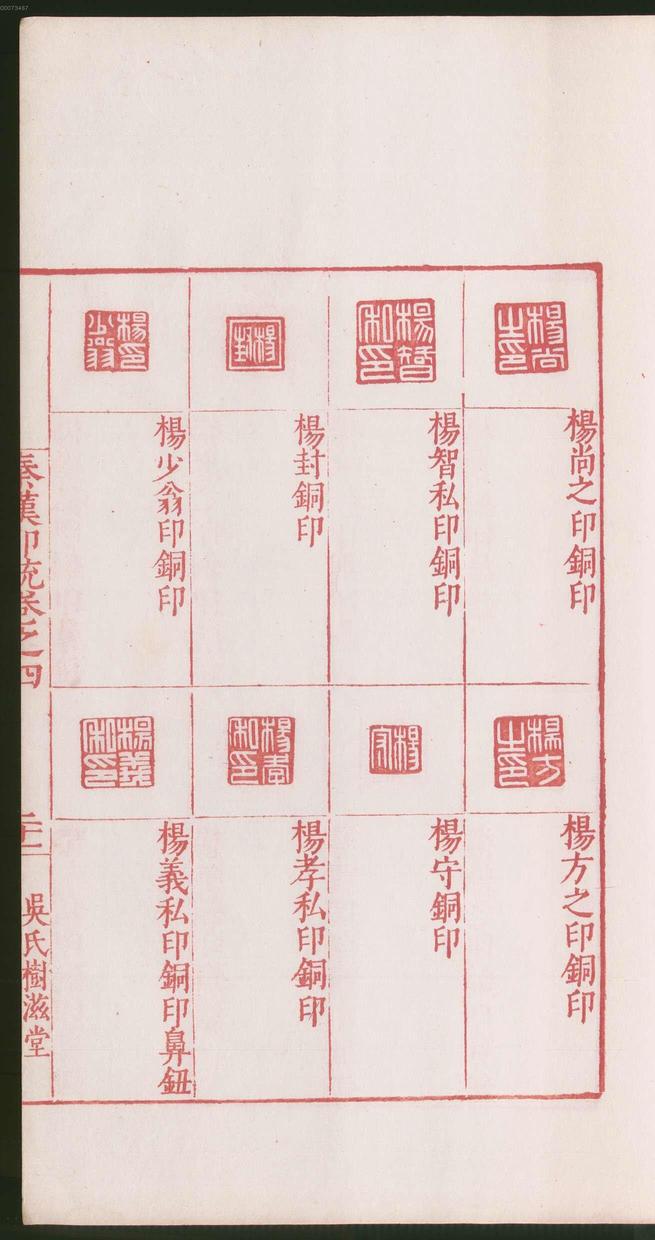 00073467
楊尚之印
楊尚之印銅印
楊智私印
楊智私印銅印
楊封
楊封銅印
楊少翁印
楊少翁印銅印
楊方之印
楊方之印銅印
楊守
楊守銅印
楊孝私印
楊孝私印銅印
楊義私印
楊義私印銅印鼻鈕
秦漢印統卷之四
吳氏樹滋堂